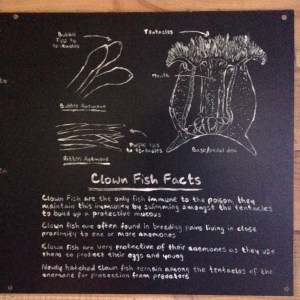 Bubble
Tips to
tentacles
Tentacles
Mouth
Bubble Anemone
Purple tips
to tentacles
Ribbon Anemone
Base/pedal disc
Clown Fish Facts
Clown Fish are the only fish immune to the poison, they
maintain this immunity by swimming amongst the tentacles
to build up a protective mucous
Clown fish are often found in breeding pairs living in close
proximity to one or more anemones
Clown fish are very protective of their anemones as they use
them to protect their eggs and young
Newly hatched clown fish remain among the tentacles of the
anemone for protection from predators